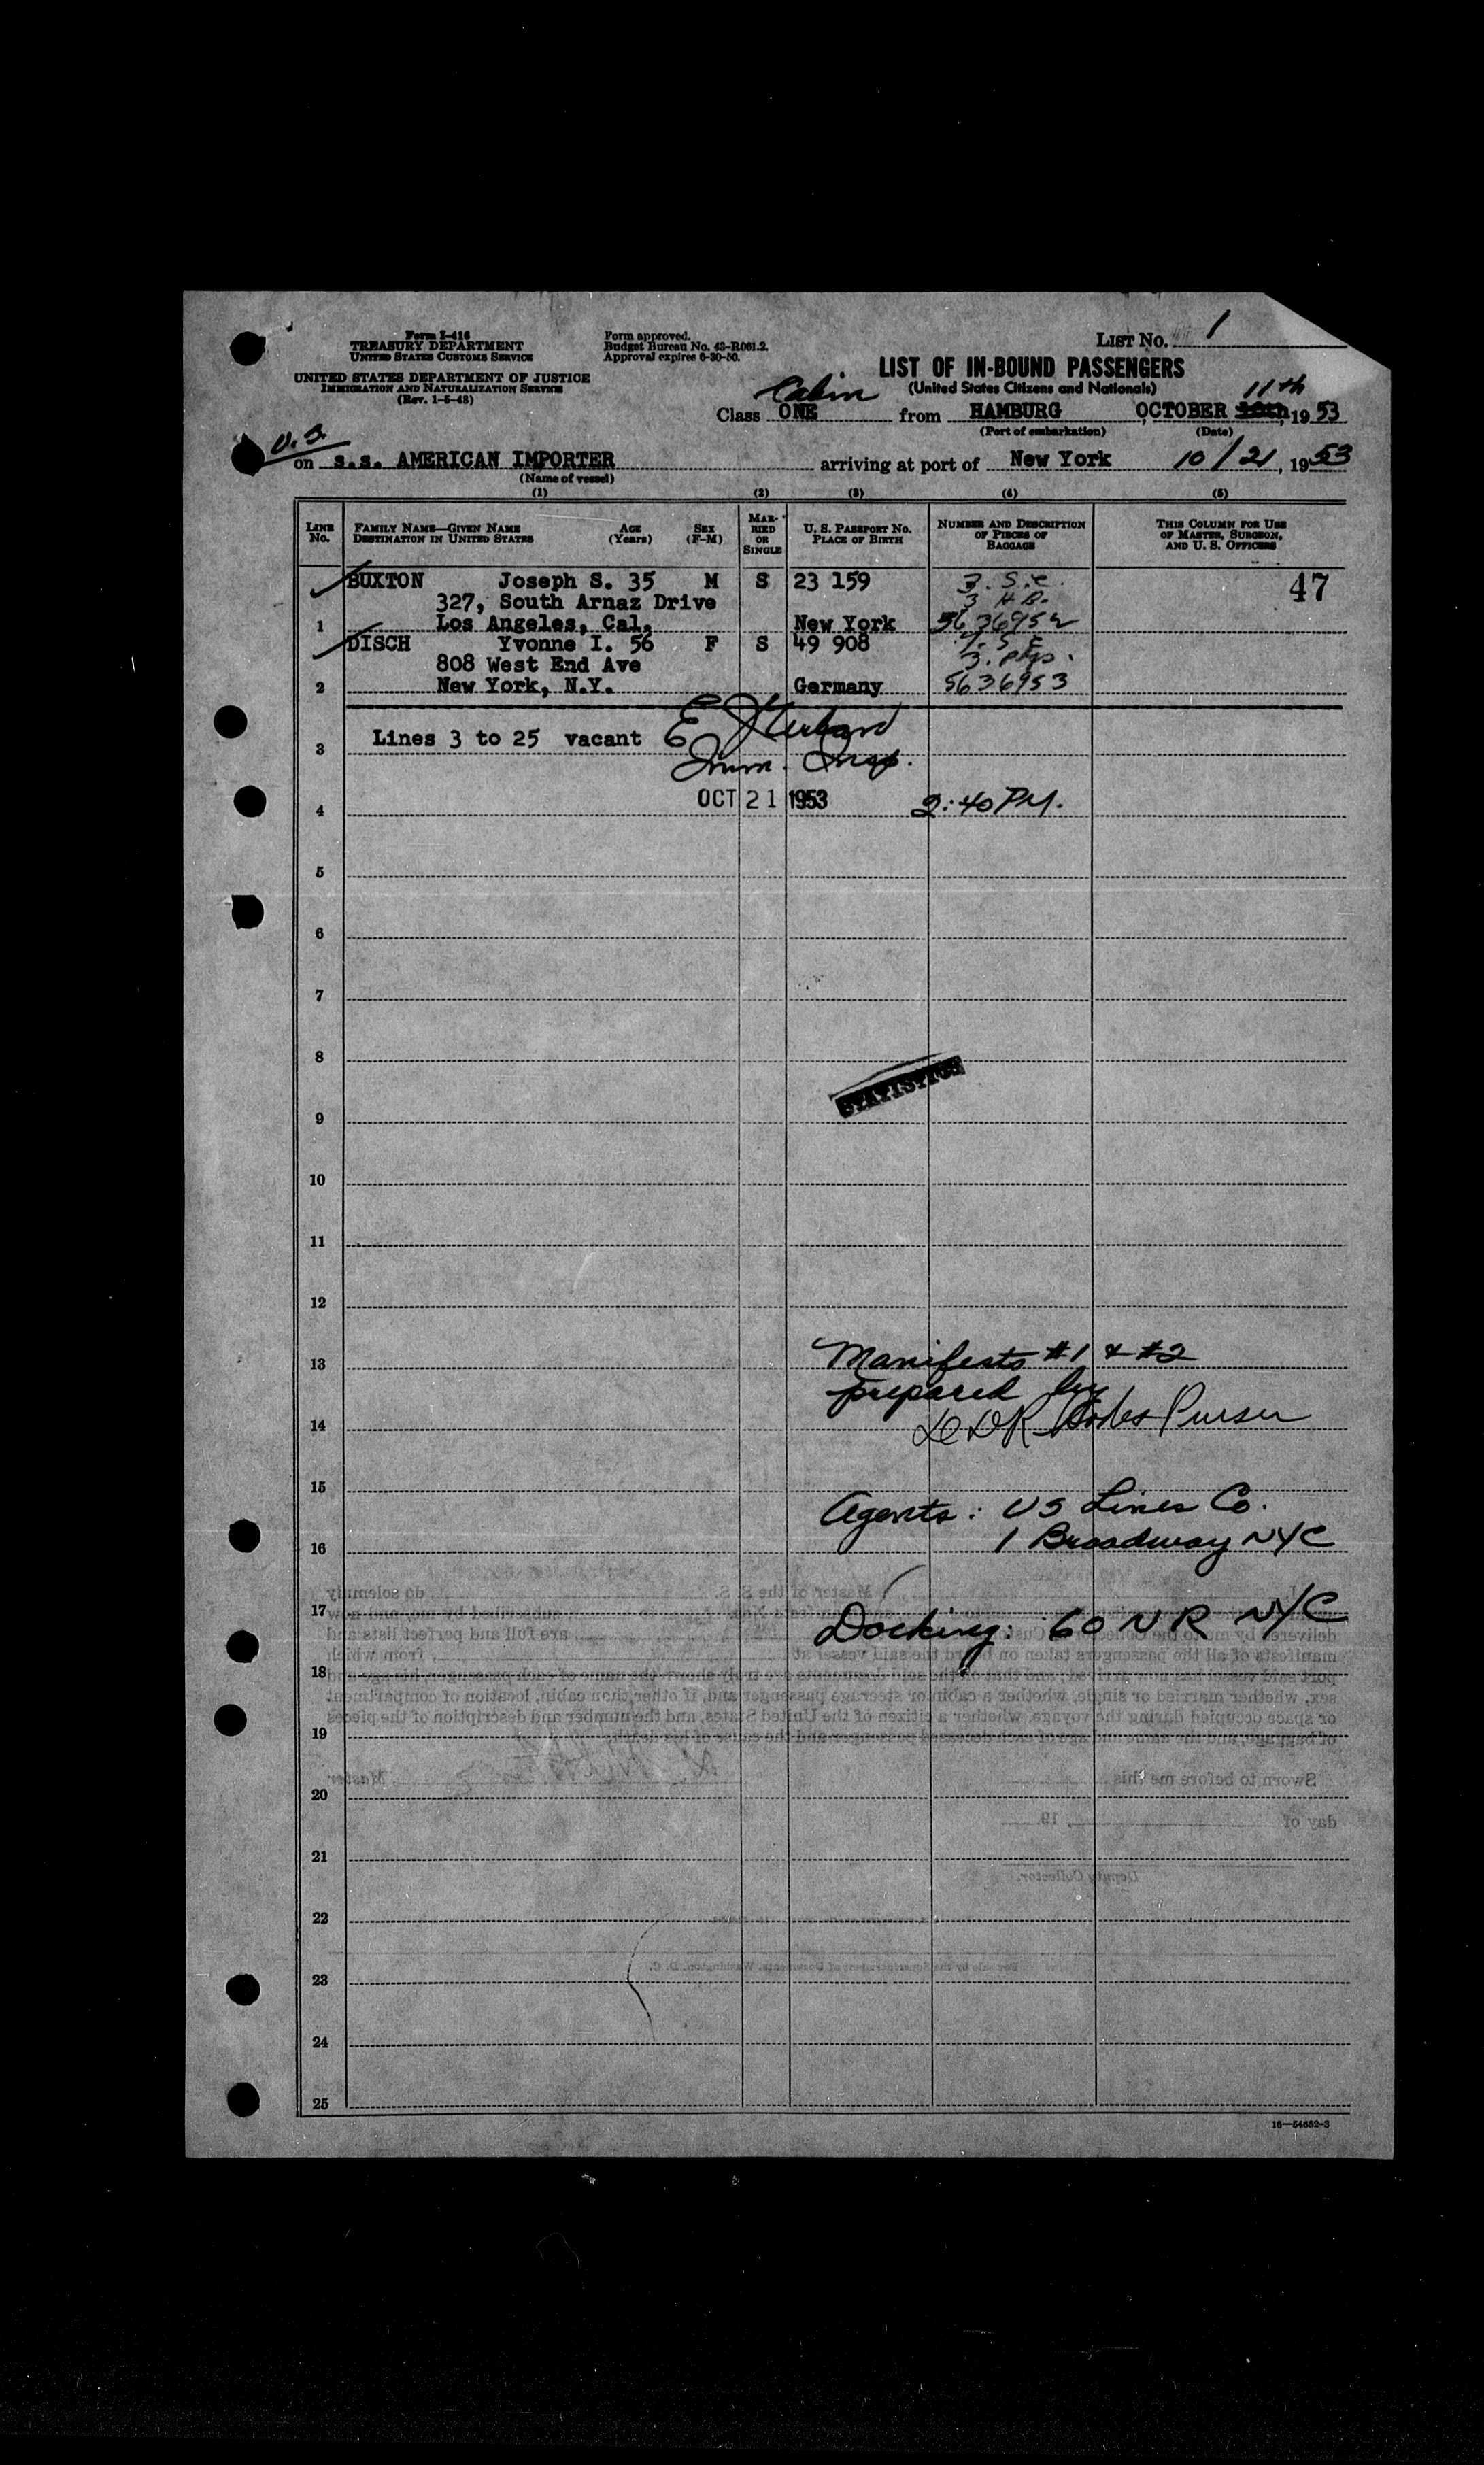 Form I-416
TREASURY DEPARTMENT
UNITED STATES CUSTOMS SERVICE
UNITED STATES DEPARTMENT OF JUSTICE
IMMIGRATION AND NATURALIZATION SERVICE
(Rev. 1-5-48)
Form approved.
Budget Bureau No. 43-R061.2.
Approval expires 6-30-50.
LIST No. 1
LIST OF IN-BOUND PASSENGERS
(United States Citizens and Nationals)
Cabin 11th
Class ONE from HAMBURG, OCTOBER 10th, 1953
(Port of embarkation) (Date)
U.S.
on s.s. AMERICAN IMPORTER arriving at port of New York 10/21, 1953
(Name of vessel)
(1) (2) (3) (4) (5)
LINE No. FAMILY NAME—GIVEN NAME DESTINATION IN UNITED STATES AGE (Years) SEX (F-M) MARRIED OR SINGLE U. S. PASSPORT No. PLACE OF BIRTH NUMBER AND DESCRIPTION OF PIECES OF BAGGAGE THIS COLUMN FOR USE OF MASTER, SURGEON, AND U. S. OFFICERS
BUXTON Joseph S. 35 M S 23 159 3. S.C. 47
327, South Arnaz Drive 3 H.B.
1 Los Angeles, Cal. New York 5636952
DISCH Yvonne I. 56 F S 49 908
808 West End Ave 3. pkgs.
2 New York, N.Y. Germany 5636953
3 Lines 3 to 25 vacant E
Imm. Insp.
4 OCT 21 1953 2:40 PM.
5
6
7
8
STATISTICS
9
10
11
12
13 Manifests #1 & #2
prepared by
14 Purser
15 Agents: US Lines Co.
16 1 Broadway NYC
17 Docking: 60 N R NYC
18
19
20
21
22
23
24
25
16—54652-3